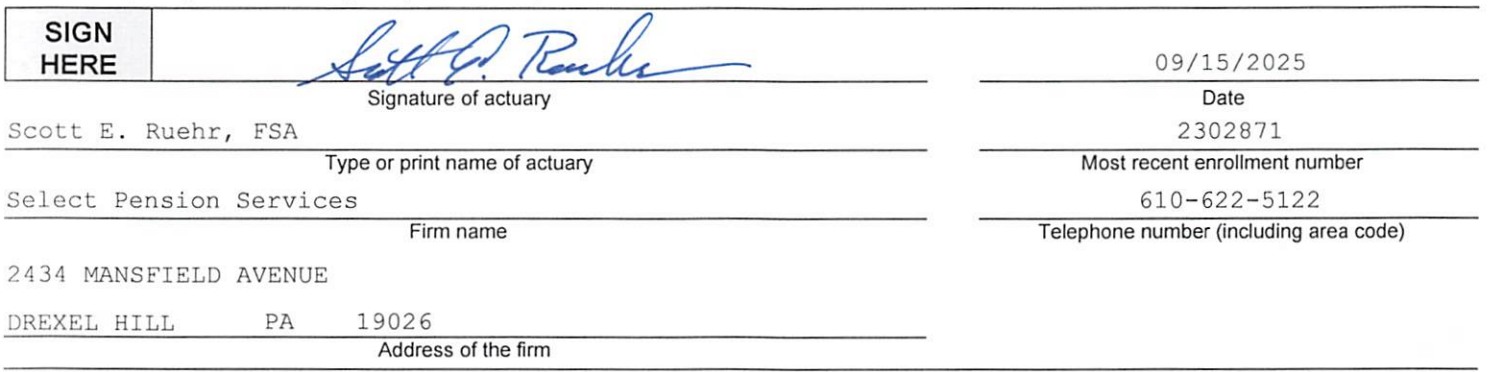 SIGN HERE
Scott E. Ruehr 09/15/2025
Signature of actuary Date
Scott E. Ruehr, FSA 2302871
Type or print name of actuary Most recent enrollment number
Select Pension Services 610-622-5122
Firm name Telephone number (including area code)
2434 MANSFIELD AVENUE
DREXEL HILL PA 19026
Address of the firm